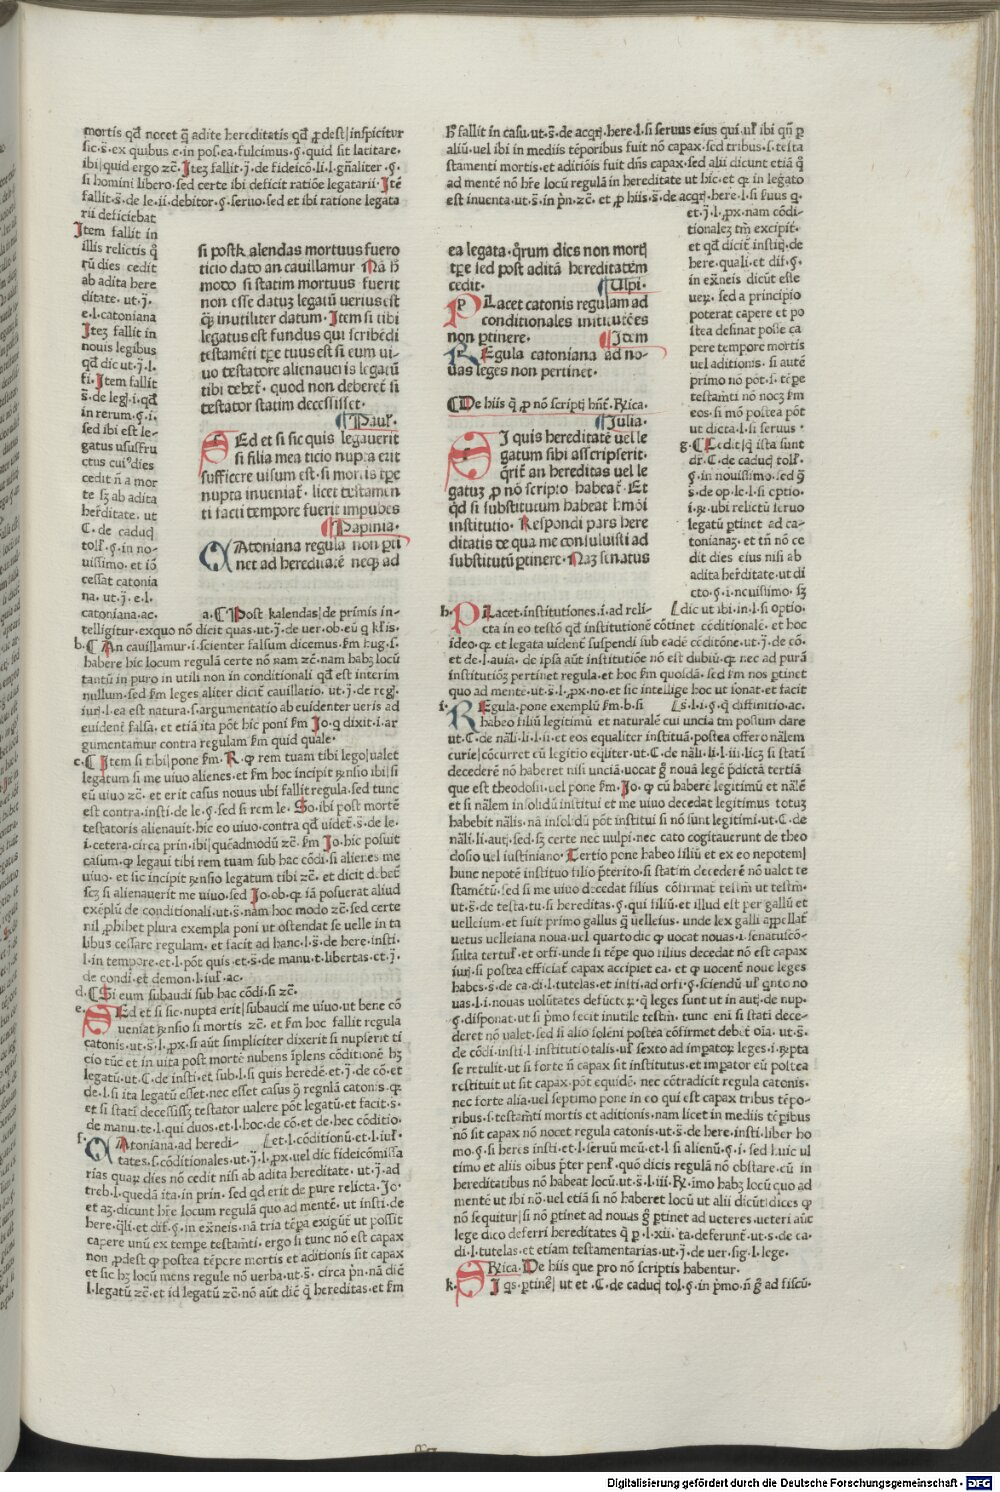 mortis qđ nocet q̃ adite hereditatis qđ ꝓdest|inspicitur
sic.s̃.ex quibus c.in pos.ea.fulcimus.§.quid sit latitare.
ibi|quid ergo zc̃. Itez fallit.j̃.de fideicõ.li.l.gñaliter.§.
si homini libero.sed certe ibi deficit ratiõe legatarii. Itẽ
fallit.s̃.de le.ii.debitor.§.seruo.sed et ibi ratione legata
rii deficiebat
Item fallit in
illis relictis q̃
rũ dies cedit
ab adita here
ditate. ut.j̃.
e.l.catoniana
Itez fallit in
nouis legibus
qđ dic ut.j̃.l.
fi. Item fallit
s̃.de leg̃.i.qđ
in rerum.§.i.
sed ibi est le-
gatus ususfru
ctus cuiꝰdies
cedit ñ a mor
te sʒ ab adita
heřditate. ut
C. de caduq̃
toll̃.§.in no-
uissimo.et iõ
cessat catonia
na. ut.j̃.e.l.
catoniana.ac.
si postk alendas mortuus fuero
ticio dato an cauillamur Nã h̃
modo si statim mortuus fuerit
non esse datuʒ legatũ uerius est
q̃ʒ inutiliter datum. Item si tibi
legatus est fundus qui scribẽdi
testamẽti tp̃e tuus est si eum ui-
uo testatore alienaueris legatũ
tibi debet̃. quod non deberet̃ si
testator statim decessisset.
Paul̃.
SEd et si sic quis legauerit
si filia mea ticio nupta erit
sufficere uisum est.si mortis tp̃e
nupta inueniat̃. licet testamen
ti facti tempore fuerit impubes
Papinia.
CAtoniana regula non ꝑti
net ad hereditatẽ neqʒ ad
a. Post kalendas|de primis in-
telligitur.exquo nõ dicit quas.ut.j̃.de uer.ob.eũ q̃ kl̃is.
b. An cauillamur.i.scienter falsum dicemus.fm hug.s.
habere hic locum regulã certe nõ nam zc̃.nam habʒ locũ
tantũ in puro in utili non in conditionali qđ est interim
nullum.sed fm leges aliter dicit̃ cauillatio. ut.j̃.de reg̃.
iur̃.l.ea est natura.s.argumentatio ab euidenter ueris ad
euident̃ falsa. et etiã ita põt hic poni fm Jo.q̃ dixit.i.ar
gumentamur contra regulam fm quid quale.
c. Item si tibi|pone fm. R. q̃ rem tuam tibi lego|ualet
legatum si me uiuo alienes.et fm hoc incipit r̃nsio ibi|si
eũ uiuo zc̃. et erit casus nouus ubi fallit regula.sed tunc
est contra.insti.de le.§.sed si rem le. So.ibi post mortẽ
testatoris alienauit.hic eo uiuo.contra qđ uidet̃.s̃.de le.
i.cetera.circa prin.ibi|quẽadmodũ zc̃.fm Jo.hic posuit
casum.q̃ legaui tibi rem tuam sub hac cõdi.si alienes me
uiuo. et sic incipit r̃nsio legatum tibi zc̃. et dicit debet̃
scʒ si alienauerit me uiuo.sed Jo.ob.q̃ iã posuerat aliud
exẽplũ de conditionali.ut.s̃.nam hoc modo zc̃.sed certe
nil ꝓhibet plura exempla poni ut ostendat se uelle in ta
libus cessare regulam.et facit ad hanc.l.s̃.de here.insti.
l.in tempore.et.l.põt quis.et.s̃.de manu.t.libertas.et.j̃.
de condi.et demon.l.iul̃.ac.
d. Si eum subaudi sub hac cõdi.si zc̃.
e. SEd et si sic.nupta erit|subaudi me uiuo.ut bene cõ
ueniat r̃nsio si mortis zc̃. et fm hoc fallit regula
catonis.ut.s̃.l.ꝓx.si aũt simpliciter dixerit si nupserit ti
cio tũc et in uita post mortẽ nubens ĩplens cõditionẽ hʒ
legatũ.ut.C.de insti.et sub.l.si quis heredẽ.et.j̃.de cõ.et
de.l.si ita legatũ esset.nec esset casus q̃ regulã catonis.q̃
et si statĩ decessissʒ testator ualere põt legatũ.et facit.s̃.
de manu.te.l.qui duos.et.l.hoc.de cõ.et de.hec cõditio.
f. CAtoniana.ad heredi- et.l.cõditionũ.et.l.iul̃.
tates.s.cõditionales.ut.j̃.l.ꝓx.uel dic fideicõmissa
rias quaʒ dies nõ cedit nisi ab adita hereditate. ut.j̃.ad
treb.l.quedã ita.in prin. sed qđ erit de pure relicta. Jo.
et aʒ.dicunt hr̃e locum regulã quo ad mentẽ. ut insti.de
here.q̃li.et dif̃.§.in exñeis.nã tria tẽpa exigũt̃ ut possit
capere unũ ex tempe testam̃ti. ergo si tunc nõ est capax
non ꝓdest q̃ postea tẽpore mortis et aditionis sit capax
et sic hʒ locũ mens regule nõ uerba.ut.s̃. circa p̃n.nã diẽ
l.legatũ zc̃.et id legatũ zc̃.nõ aũt diẽ q̃ hereditas.et fm
h̃ fallit in casu.ut.s̃.de acq̃r̃.here.l.si seruus eius qui.ul̃ ibi qñ p̃
aliũ.uel ibi in mediis tẽporibus fuit nõ capax.sed tribus.s.testa
stamenti mortis.et aditiõis fuit dñs capax.sed alii dicunt etiã q̃
ad mentẽ nõ hr̃e locũ regulã in hereditate ut hic.et q̃ in legato
est inuenta.ut.s̃.in p̃n.zc̃.et ꝓ hiis.s̃.de acq̃r̃.here.l.si ẜuus q̃.
et.j̃.l.ꝓx.nam cõdi-
tionaleʒ tm̃ excipit̃.
et qđ dicit̃ instit̃.de
here.quali.et dif.§.
in exñeis dicũt esse
uer̃. sed a principio
poterat capere et po
stea desinat posse ca
pere tempore mortis
uel aditionis. si autẽ
primo nõ põt.i.tẽpe
testam̃ti nõ nocʒ fm
eos.si mõ postea põt
ut dicta.l.si seruus.
g. Cedit|q̃ ista sunt
dr̃.C.de caduq̃ toll̃.
§.in nouissimo.sed q̃
s̃.de op.le.l.si optio.
i.ubi relictũ seruo
legatũ ꝑtinet ad ca-
tonianaʒ.et tñ nõ ce
dit dies eius nisi ab
adita heřditate.ut di
cto.§.i.nouissimo.sʒ
dic ut ibi.in.l.si optio.
ea legata.q̃rum dies non mortĩ
tp̃e sed post aditã hereditatem
cedit. Ulpi.
PLacet catonis regulam ad
conditionales institutiões
non ꝑtinere. Item
REgula catoniana ad no-
uas leges non pertinet.
De hiis q̃ ꝓ nõ scriptĩ hñt̃. Rica.
Julia.
SI quis hereditatẽ uel le
gatum sibi asscripserit.
q̃rit̃ an hereditas uel le
gatuʒ ꝓ nõ scripto habeat̃. Et
qđ si substitutum habeat h̃mõi
institutio. Respondi pars here
ditatis de qua me consuluisti ad
substitutũ ꝑtinere. Naʒ senatus
h. PLacet.institutiones.i.ad reli-
cta in eo testo qđ institutionẽ cõtinet cõditionalẽ. et hoc
ideo.q̃ et legata uident̃ suspendi sub eadẽ cõditõne.ut.j̃.de cõ.
et de.l.auia. de ipsa aũt institutiõe nõ est dubiũ.q̃ nec ad purã
institutionʒ pertinet regula.et hoc fm quosdã.sed fm nos ꝑtinet
quo ad mentẽ.ut.s̃.l.ꝓx.no.et sic intellige hoc ut sonat.et facit
s̃.l.i.§.q̃ diffinitio.ac.
i. REgula.pone exemplũ fm.b.si
habeo filiũ legitimũ et naturalẽ cui uncia tm̃ possum dare
ut.C.de nãli.li.l.ii.et eos equaliter instituã.postea offero nãlem
curie|cõcurret cũ legitio eq̃liter.ut.C.de nãli.li.l.iii.licʒ si statĩ
decederẽ nõ haberet nisi unciã.uocat g̃ nouã legẽ p̃dictã tertiã
que est theodosii.uel pone fm. Jo. q̃ cũ habere legitimũ et nãlẽ
et si nãlem insolidũ institui et me uiuo decedat legitimus totuʒ
habebit nãlis.nã insolidũ põt institui si nõ sunt legitimi.ut.C.de
nãli.li.aut̃.sed.sʒ certe nec uulpi.nec cato cogitauerunt de theo
dosio uel iustiniano. Tertio pone habeo filiũ et ex eo nepotem|
hunc nepotẽ instituo filio p̃terito.si statim decederẽ nõ ualet te
stamẽtũ.sed si me uiuo decedat filius cõfirmat̃ testm̃ ut testm̃.
ut.s̃.de testa.tu.si hereditas.§.qui filiũ.et illud est per gallũ et
uelleium.et fuit primo gallus q̃ uelleius. unde lex galli appellat̃
uetus uelleiana noua.uel quarto dic q̃ uocat nouas.i.senatuscõ-
sulta tertul̃.et orfi.unde si tẽpe quo filius decedat nõ est capax
iur̃.si postea efficiat̃ capax accipiet ea. et q̃ uocent̃ noue leges
habes.s̃.de ca.di.l.tutelas.et insti.ad orfi.§.sciendũ.ul̃ q̃nto no
uas.l.i.nouas uolũtates defuncti.q̃ leges sunt ut in aut̃.de nup.
§.disponat.ut si p̃mo fecit inutile testm̃. tunc eni si stati dece-
deret nõ ualet.sed si alio soleni postea cõfirmet debet̃ oĩa.ut.s̃.
de cõdi.insti.l.institutio talis.ul̃ sexto ad imꝑatoꝝ leges.i.r̃epta
se retulit.ut si forte ñ capax sit institutus.et imꝑator eũ postea
restituit ut sit capax.põt equidẽ. nec cõtradicit regula catonis.
nec forte alia.uel septimo pone in eo qui est capax tribus tẽpo-
ribus.s.testam̃ti mortis et aditionis.nam licet in mediis tẽꝑibus
nõ sit capax nõ nocet regula catonis.ut.s̃.de here.insti.liber ho
mo.§.si heres insti.et.l.seruũ meũ.et.l.si alienũ.§.i.sed huic ul
timo et aliis oibus p̃ter penl̃. quõ dicis regulã nõ obstare.cũ in
hereditatibus nõ habeat locũ.ut.s̃.l.iii. R̃.imo habʒ locũ quo ad
mentẽ ut ibi nõ.uel etiã si nõ haberet locũ ut alii dicũt|dices q̃
nõ sequitur|si nõ ꝑtinet ad nouas g̃ ꝑtinet ad ueteres.ueteri aũt
lege dico deferri hereditates q̃ ꝑ.l.xii.ta.deferunt̃.ut.s.de ca-
di.l.tutelas.et etiam testamentarias.ut.j̃.de uer.sig.l.lege.
Rica. De hiis que pro nõ scriptis habentur.
k. SI q̃s.ꝑtinẽ| ut et.C.de caduq̃ tol.§.in p̃mo.ñ g̃ ad fiscũ.
Digitalisierung gefördert durch die Deutsche Forschungsgemeinschaft - DFG